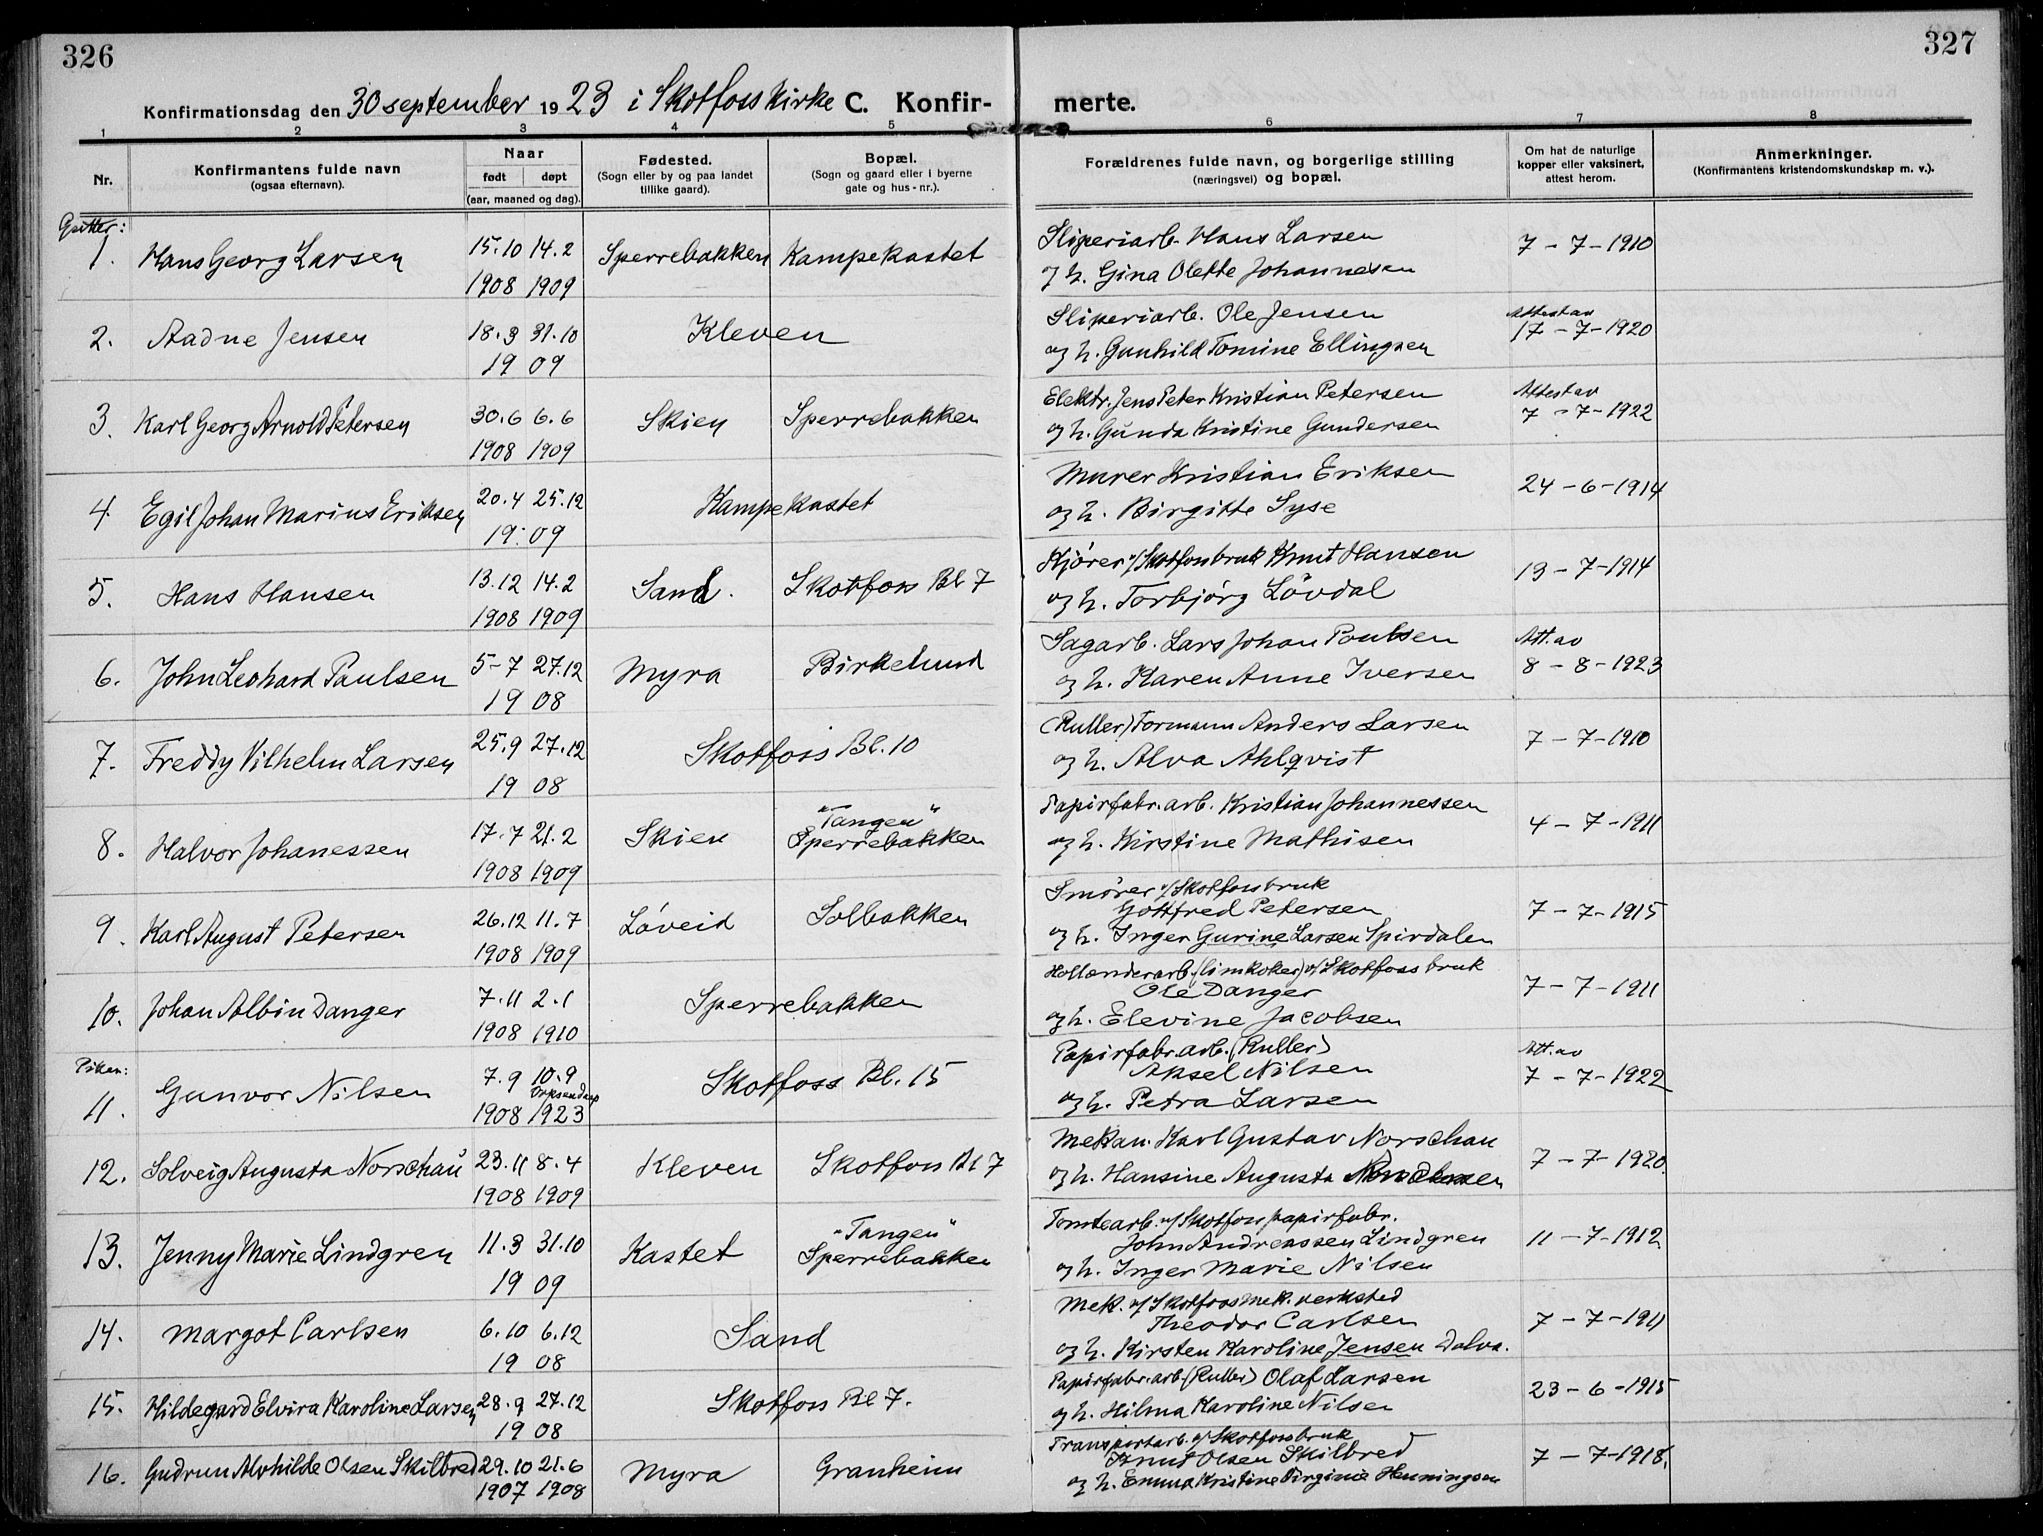 326
327
Konfirmationsdag den 30 september 1923 i Skotfoss Kirke C. Konfir- merte.
1 2 3 4 5 6 7 8
Nr.
Konfirmantens fulde navn
(ogsaa efternavn).
Naar
født døpt
(aar, maaned og dag).
Fødested.
(Sogn eller by og paa landet
tillike gaard).
Bopæl.
(Sogn og gaard eller i byerne
gate og hus-nr.).
Forældrenes fulde navn, og borgerlige stilling
(næringsvei) og bopæl.
Om hat de naturlige
kopper eller vaksinert,
attest herom.
Anmerkninger.
(Konfirmantens kristendomskundskap m. v.).
Gutter:
1. Hans Georg Larsen 15.10 14.2 Sperrebakken Kampekastet Sliperiarb. Hans Larsen 7-7-1910
1908 1909 og h. Gina Olette Johannesen
2. Aadne Jensen 18.3 31.10 Kleven Sliperiarb. Ole Jensen Attest av 17-7-1920
19 09 og h. Gunhild Tomine Ellingsen
3. Karl Georg Arnold Petersen 30.6 6.6 Skien Sperrebakken Elektr. Jens Peter Kristian Petersen Attest av 7-7-1922
1908 1909 og h. Gunda Kristine Gundersen
4. Egil Johan Marius Eriksen 20.4 25.12 Kampekastet Murer Kristian Eriksen 24-6-1914
19 09 og h. Birgitte Syse
5. Hans Hansen 13.12 14.2 Sand. Skotfoss Bl 7 Kjører v/Skotfoss bruk Knut Hansen 13-7-1914
1908 1909 og h. Torbjørg Løvdal
6. John Leonard Paulsen 5-7 27.12 Myra Birkelund Sagarb. Lars Johan Paulsen Att. av 8-8-1923
19 08 og h. Karen Anne Iversen
7. Freddy Vilhelm Larsen 25.9 27.12 Skotfoss Bl. 10 (Ruller) Formann Anders Larsen 7-7-1910
19 08 og h. Alva Ahlqvist
8. Halvor Johanessen 17.7 21.2 Skien "Tangen" Sperrebakken Papirfabr. arb. Kristian Johannessen 4-7-1911
1908 1909 og h. Kirstine Mathisen
9. Karl August Petersen 26.12 11.7 Løveid Solbakken Smører v/Skotfoss bruk 7-7-1915
Gottfred Petersen
1908 1909 og h. Inger Gurine Larsen Spirdalen
10. Johan Albin Danger 7.11 2.1 Sperrebakken Hollænderarb. (limkoker) v/Skotfoss bruk 7-7-1911
Ole Danger
1908 1910 og h. Elevine Jacobsen
Piker:
11. Gunvor Nilsen 7.9 10.9 Skotfoss Bl. 15 Papirfabr. arb. (Ruller) Att. av 7-7-1922
Aksel Nilsen
1908 1923 og h. Petra Larsen
12. Solveig Augusta Norschau 23.11 8.4 Kleven Skotfoss Bl 7 Mekan. Karl Gustav Norschau 7-7-1920.
1908 1909 og h. Hansine Augusta
13. Jenny Marie Lindgren 11.3 31.10 Kastet "Tangen" Sperrebakken Tomtearb. v/Skotfoss papirfabr. 11-7-1912
John Andreassen Lindgren
19 09 og h. Inger Marie Nilsen
14. Margot Carlsen 6.10 6.12 Sand Mek. v/Skotfoss mek. verksted 7-7-1911
Theodor Carlsen
19 08 og h. Kirsten Karoline Jensen Dalva.
15. Hildegard Elvira Karoline Larsen 28.9 27.12 Skotfoss Bl 7. Papirfabr. arb. (Ruller) Olaf Larsen 23-6-1915
19 08 og h. Hilma Karoline Nilsen
16. Gudrun Alvhilde Olsen Skilbred 29.10 21.6 Myra Granheim Transportarb. v/Skotfoss bruk 7-7-1918.
Knut Olsen Skilbred
1907 1908 og h. Emma Kristine Virginie Henningsen